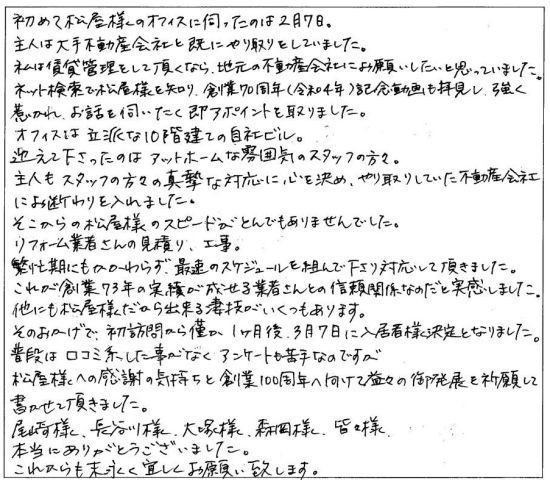 初めて松屋様のオフィスに伺ったのは2月7日。
主人は大手不動産会社と既にやり取りをしていました。
私は賃貸管理をして頂くなら、地元の不動産会社にお願いしたいと思っていました。
ネット検索で松屋様を知り、創業70周年(令和4年)記念動画も拝見し、強く
惹かれ、お話を伺いたく即アポイントを取りました。
オフィスは立派な10階建ての自社ビル。
迎えて下さったのはアットホームな雰囲気のスタッフの方々。
主人もスタッフの方々の真摯な対応に心を決め、やり取りしていた不動産会社
にお断わりを入れました。
そこからの松屋様のスピードがとんでもありませんでした。
リフォーム業者さんの見積り、工事。
繁忙期にもかかわらず、最速のスケジュールを組んで下さり対応して頂きました。
これが創業73年の実績が成せる業者さんとの信頼関係なのだと実感しました。
他にも松屋様だから出来る凄技がいくつもあります。
そのおかげで、初訪問から僅か1ヶ月後、3月7日に入居者様決定となりました。
普段は口コミ系した事がなくアンケートも苦手なのですが
松屋様への感謝の気持ちと創業100周年へ向けて益々の御発展を祈願して
書かせて頂きました。
尾崎様、長谷川様、大塚様、森岡様、皆々様、
本当にありがとうございました。
これからも末永く宜しくお願い致します。